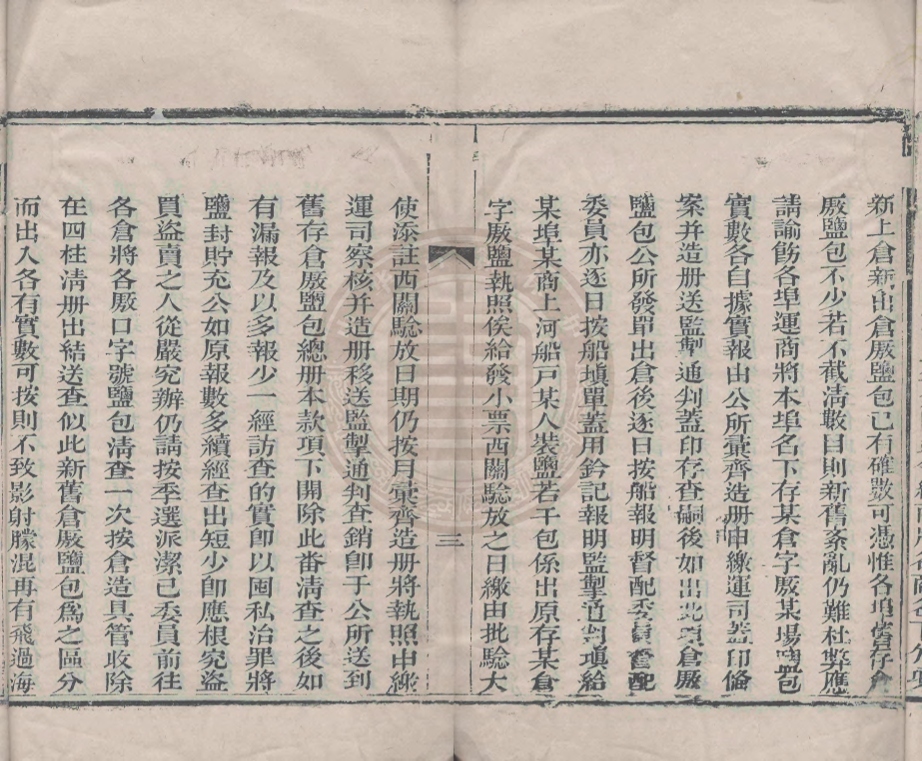 新上倉新出倉廒鹽包已有確數可憑惟各埠舊存倉
廒鹽包不少若不截清數目則新舊紊亂仍難杜弊應
請諭飭各埠運商將本埠名下存某倉字廒某場鹽包
實數各自據實報出公所彙齊造册申繳運司蓋印備
案并造册送監掣通判蓋印存查嗣後如出此項倉廒
鹽包公所發單出倉後逐日按船報明督配委員督配
委員亦逐日按船塡單蓋用鈐記報明監掣通判塡給
某埠某商上河船戶某人裝鹽若干包係出原存某倉
字廒鹽執照俟給發小票西關驗放之日繳由批驗大
三
使添註西關驗放日期仍按月彙齊造册將執照申繳
運司察核并造册移送監掣通判查銷卽于公所送到
舊存倉廒鹽包總册本款項下開除此番清查之後如
有漏報及以多報少一經訪查的實卽以囤私治罪將
鹽封貯充公如原報數多續經查出短少卽應根究盜
買盜賣之人從嚴究辦仍請按季選派潔己委員前往
各倉將各廒口字號鹽包清查一次按倉造具管收除
在四柱清册出結送查似此新舊倉廒鹽包爲之區分
而出入各有實數可按則不致影射朦混再有飛過海